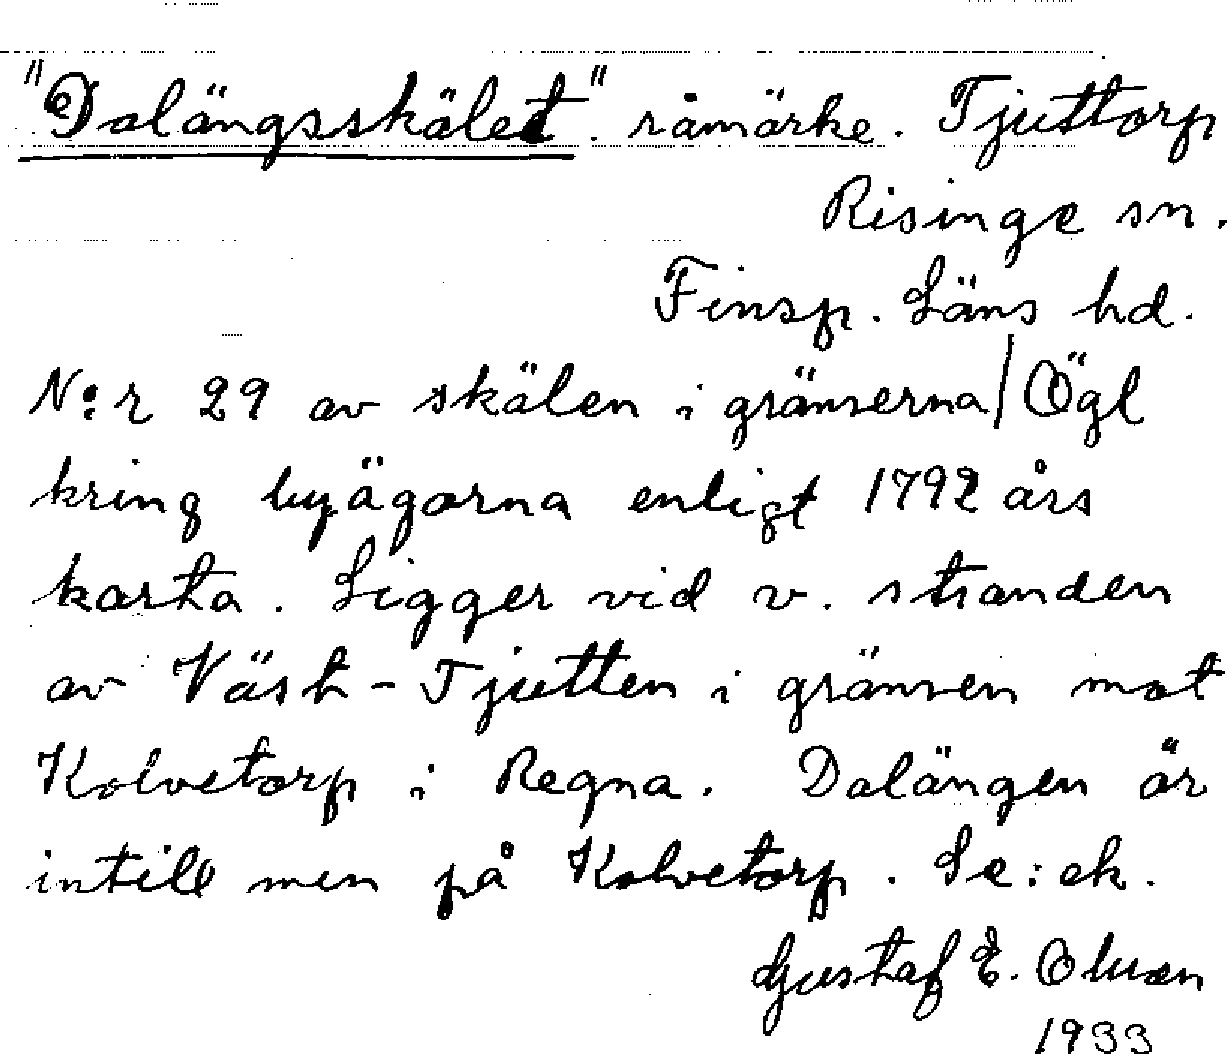 "Dalängsskälet". råmärke. Tjuttorp
Risinge sn.
Finsp. Läns hd.
N:r 29 av skälen i gränserna/Ögl
kring byägorna enligt 1792 års
karta. Ligger vid v. stranden
av Väst-Tjutten i gränsen mot
Kolvetorp i Regna. Dalängen är
intill men på Kolvetorp. Se: ek.
Gustaf E. Olsson
1933